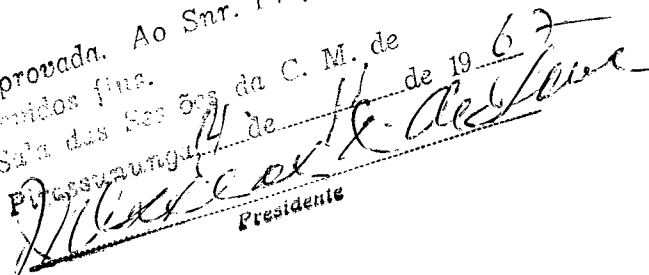 provada. Ao Snr.
devidos fins.
Sala das Sessões da C. M. de
Pirassununga, 14 de 11 de 1967
Presidente